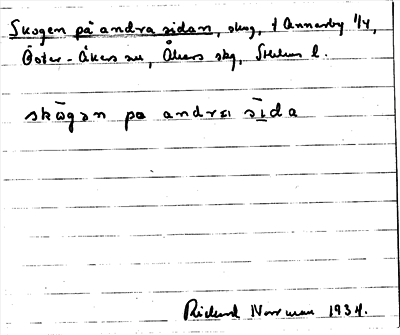 Skogen på andra sidan, skog, t Annerby 1/4,
Öster-Åkers sn, Åkers skg, Sthlms l.
skōgən på andra sīda
Rickard Norrman 1934.